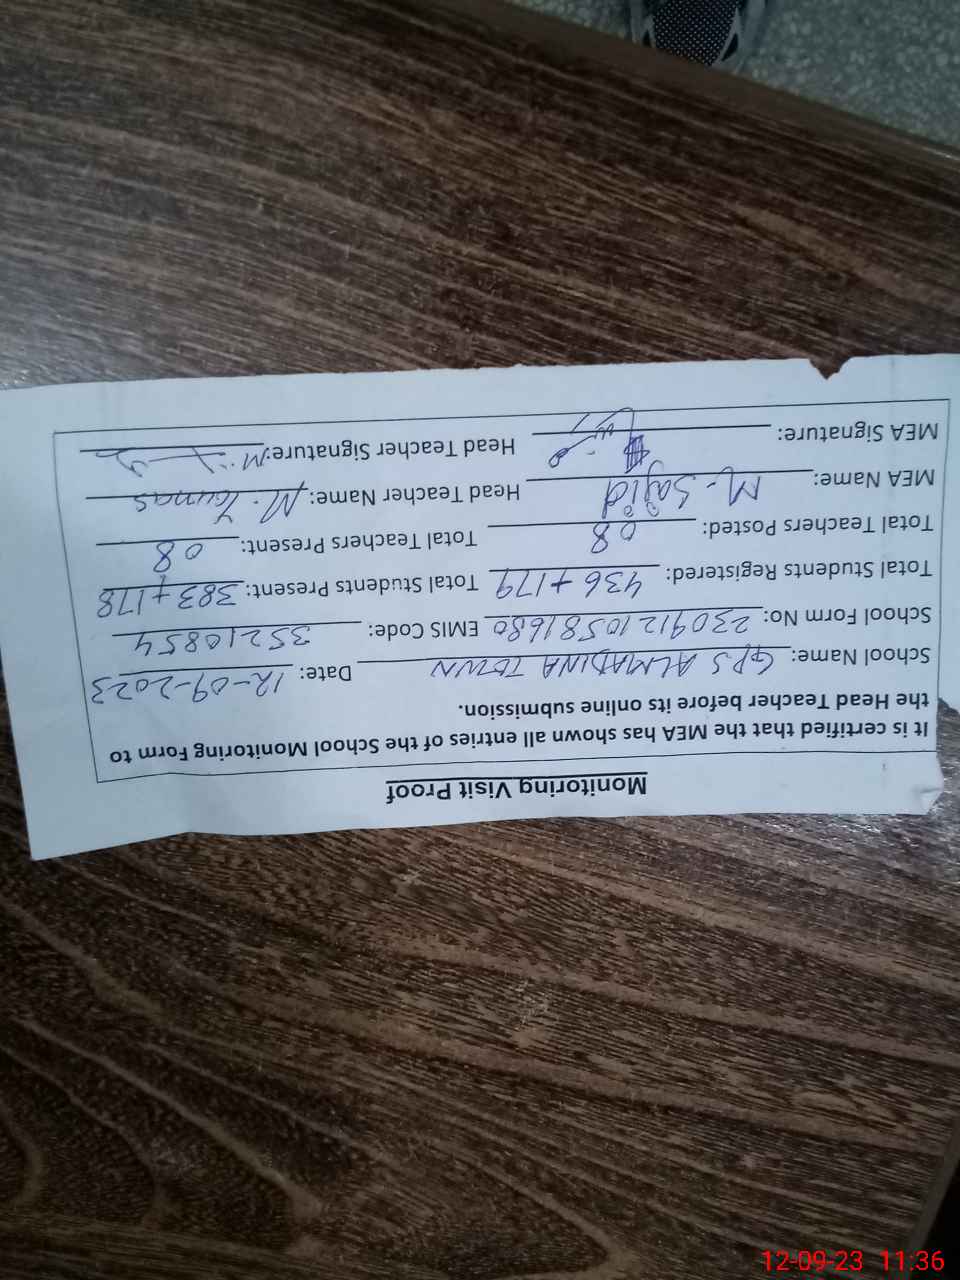 Monitoring Visit Proof
It is certified that the MEA has shown all entries of the School Monitoring Form to
the Head Teacher before its online submission.
School Name: GPS ALMADINA TOWN Date: 12-09-2023
School Form No: 23091210581680 EMIS Code: 35210854
Total Students Registered: 436+179 Total Students Present: 383+178
Total Teachers Posted: 08 Total Teachers Present: 08
MEA Name: M. Sajid Head Teacher Name: M. Younas
MEA Signature: Head Teacher Signature:
12-09-23 11:36